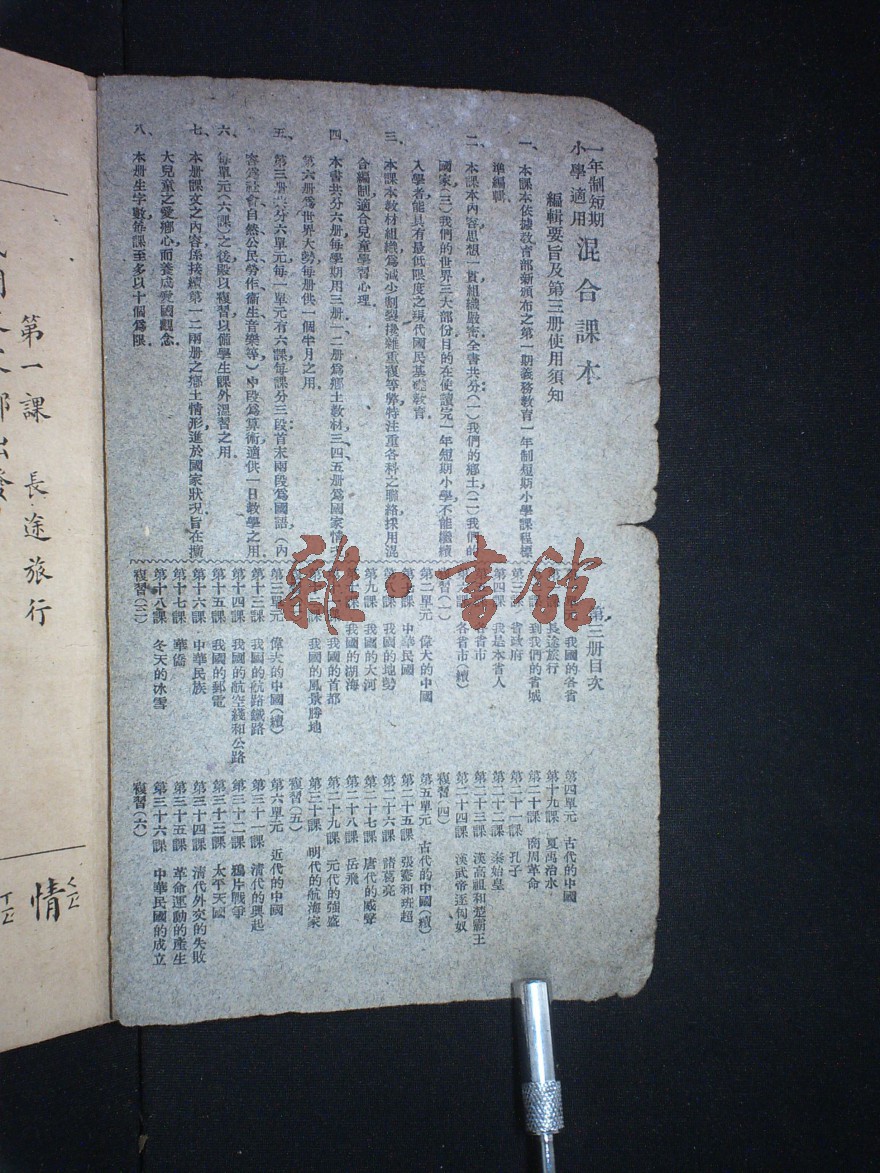 一年制短期
小學適用
混合課本
編輯要旨及第三册使用須知
一、本課本依據教育部新頒布之第一期義務教育一年制短期小學課程標
準編輯.
二、本課本內容思想一貫組織嚴密全書共分(一)我們的鄉土(二)我們的
國家,(三)我們的世界三大部份目的在使讀完一年短期小學,不能繼續
入學者,能具有最低限度之現代國民基礎教育.
三、本課本教材組織,爲減少割裂複雜重復等弊特注重各科之聯絡採用混
合編制,適合兒童學習心理.
四、本書共分六册每學期用三册.一、二册爲鄉土教材,三、四、五册爲國家情
第六册爲世界大勢每册供一個半月之用.
五、第三册共分六單元,每一單元有六課,每課分三段首末兩段爲國語(內
容爲社會自然公民勞作衞生音樂等)中段爲算術,適供一日教學之用.
六、每單元(六課)之後殿以複習以備學生課外溫習之用.
七、本册課文之內容係接續第一、二兩册之鄉土情形,進於國家狀況,旨在擴
大兒童之愛鄉心而養成愛國觀念.
八、本册生字數每課至多以十個爲限.
第三册目次
我國的各省
長途旅行
到我們的省城
第三課 省政府
第四課 我是本省人
各省市
各省市(續)
複習(一)
第二單元 偉大的中國
中華民國
我國的地勢
第九課 我國的大河
我國的湖海
我國的首都
我國的風景勝地
第三單元 偉大的中國(續)
第十三課 我國的航路鐵路
第十四課 我國的航空綫和公路
第十五課 我國的郵電
第十六課 中華民族
第十七課 華僑
第十八課 冬天的冰雪
複習(三)
第四單元 古代的中國
第十九課 夏禹治水
第二十課 商周革命
第二十一課 孔子
第二十二課 秦始皇
第二十三課 漢高祖和楚霸王
第二十四課 漢武帝逐匈奴
複習(四)
第五單元 古代的中國(續)
第二十五課 張騫和班超
第二十六課 諸葛亮
第二十七課 唐代的威聲
第二十八課 岳飛
第二十九課 元代的強盛
第三十課 明代的航海家
複習(五)
第六單元 近代的中國
第三十一課 清代的興起
第三十二課 鴉片戰爭
第三十三課 太平天國
第三十四課 清代外交的失敗
第三十五課 革命運動的產生
第三十六課 中華民國的成立
複習(六)
雜·書館
第一課 長途旅行
情 ㄑㄥ